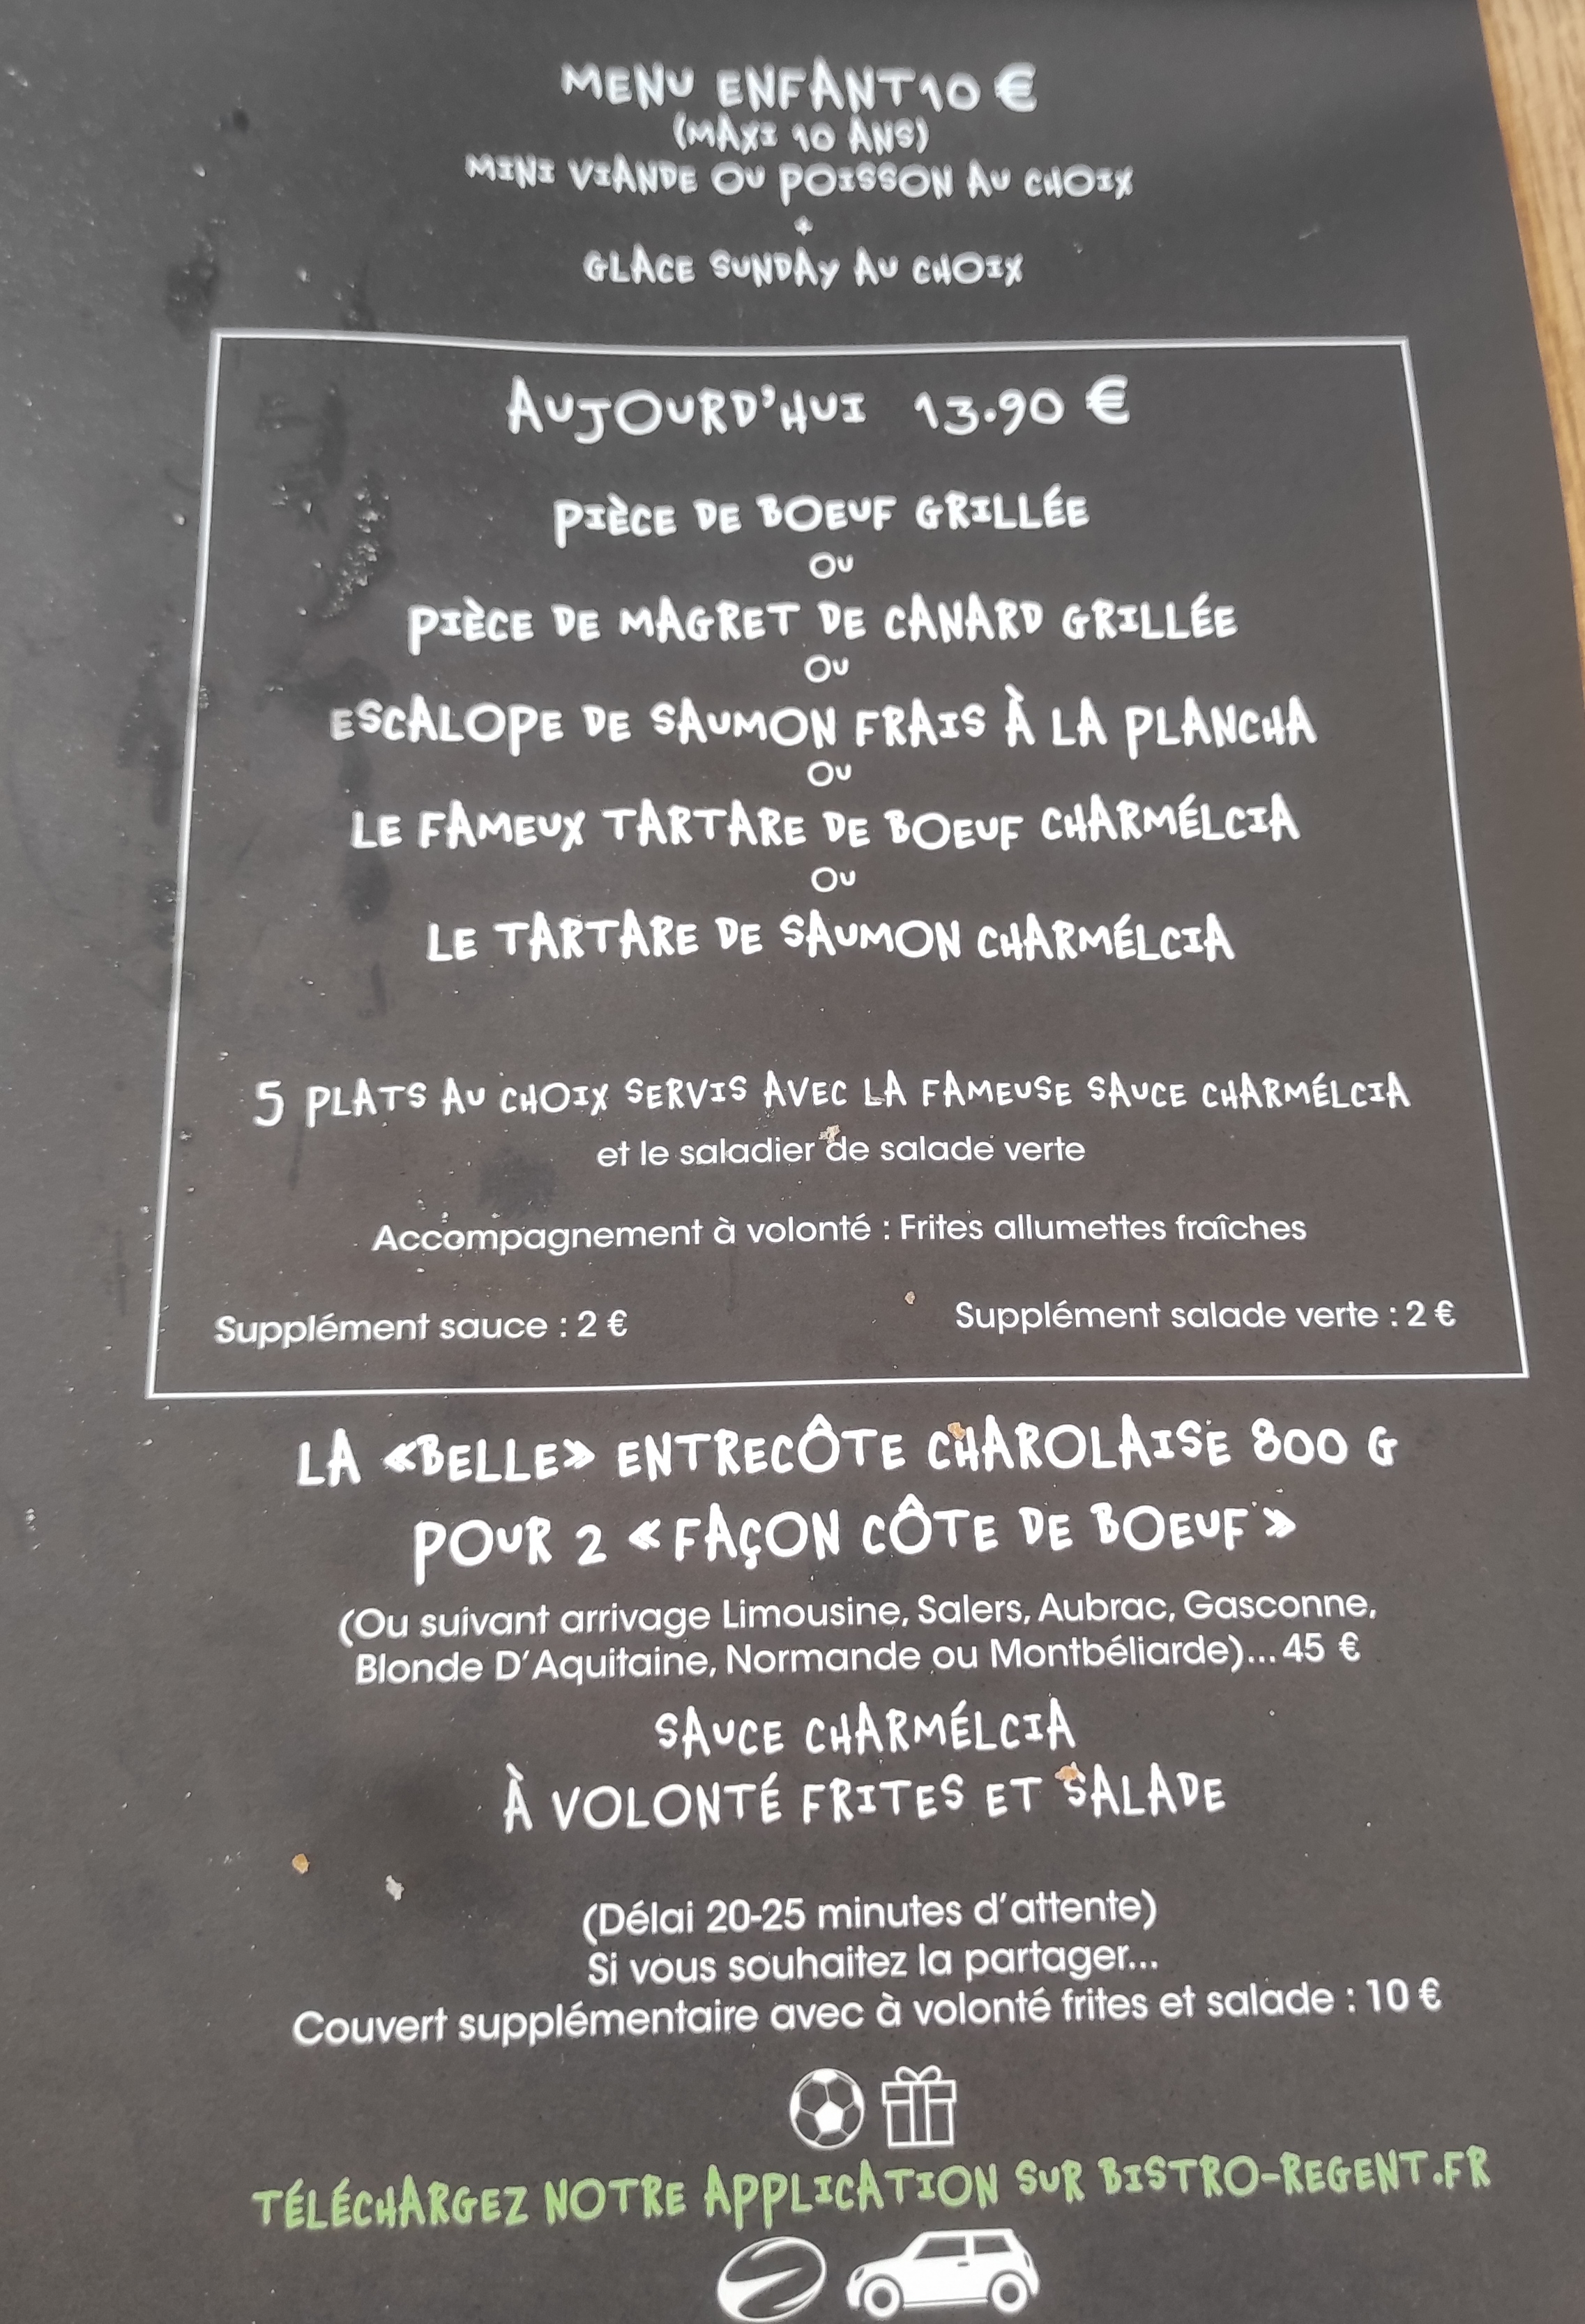 MENU ENFANT 10 €
(MAXI 10 ANS)
MINI VIANDE OU POISSON AU CHOIX
+
GLACE SUNDAY AU CHOIX
AUJOURD'HUI 13.90 €
PIÈCE DE BOEUF GRILLÉE
OU
PIÈCE DE MAGRET DE CANARD GRILLÉE
OU
ESCALOPE DE SAUMON FRAIS À LA PLANCHA
OU
LE FAMEUX TARTARE DE BOEUF CHARMÉLCIA
OU
LE TARTARE DE SAUMON CHARMÉLCIA
5 PLATS AU CHOIX SERVIS AVEC LA FAMEUSE SAUCE CHARMÉLCIA
et le saladier de salade verte
Accompagnement à volonté : Frites allumettes fraîches
Supplément sauce : 2 € Supplément salade verte : 2 €
LA «BELLE» ENTRECÔTE CHAROLAISE 800 G
POUR 2 «FAÇON CÔTE DE BOEUF»
(Ou suivant arrivage Limousine, Salers, Aubrac, Gasconne,
Blonde D'Aquitaine, Normande ou Montbéliarde)... 45 €
SAUCE CHARMÉLCIA
À VOLONTÉ FRITES ET SALADE
(Délai 20-25 minutes d'attente)
Si vous souhaitez la partager...
Couvert supplémentaire avec à volonté frites et salade : 10 €
TÉLÉCHARGEZ NOTRE APPLICATION SUR BISTRO-REGENT.FR